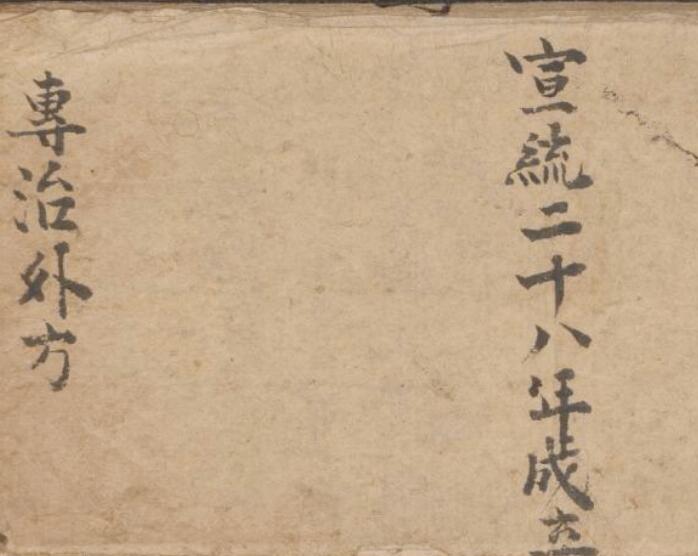 宣統二十八年成立
專治外方